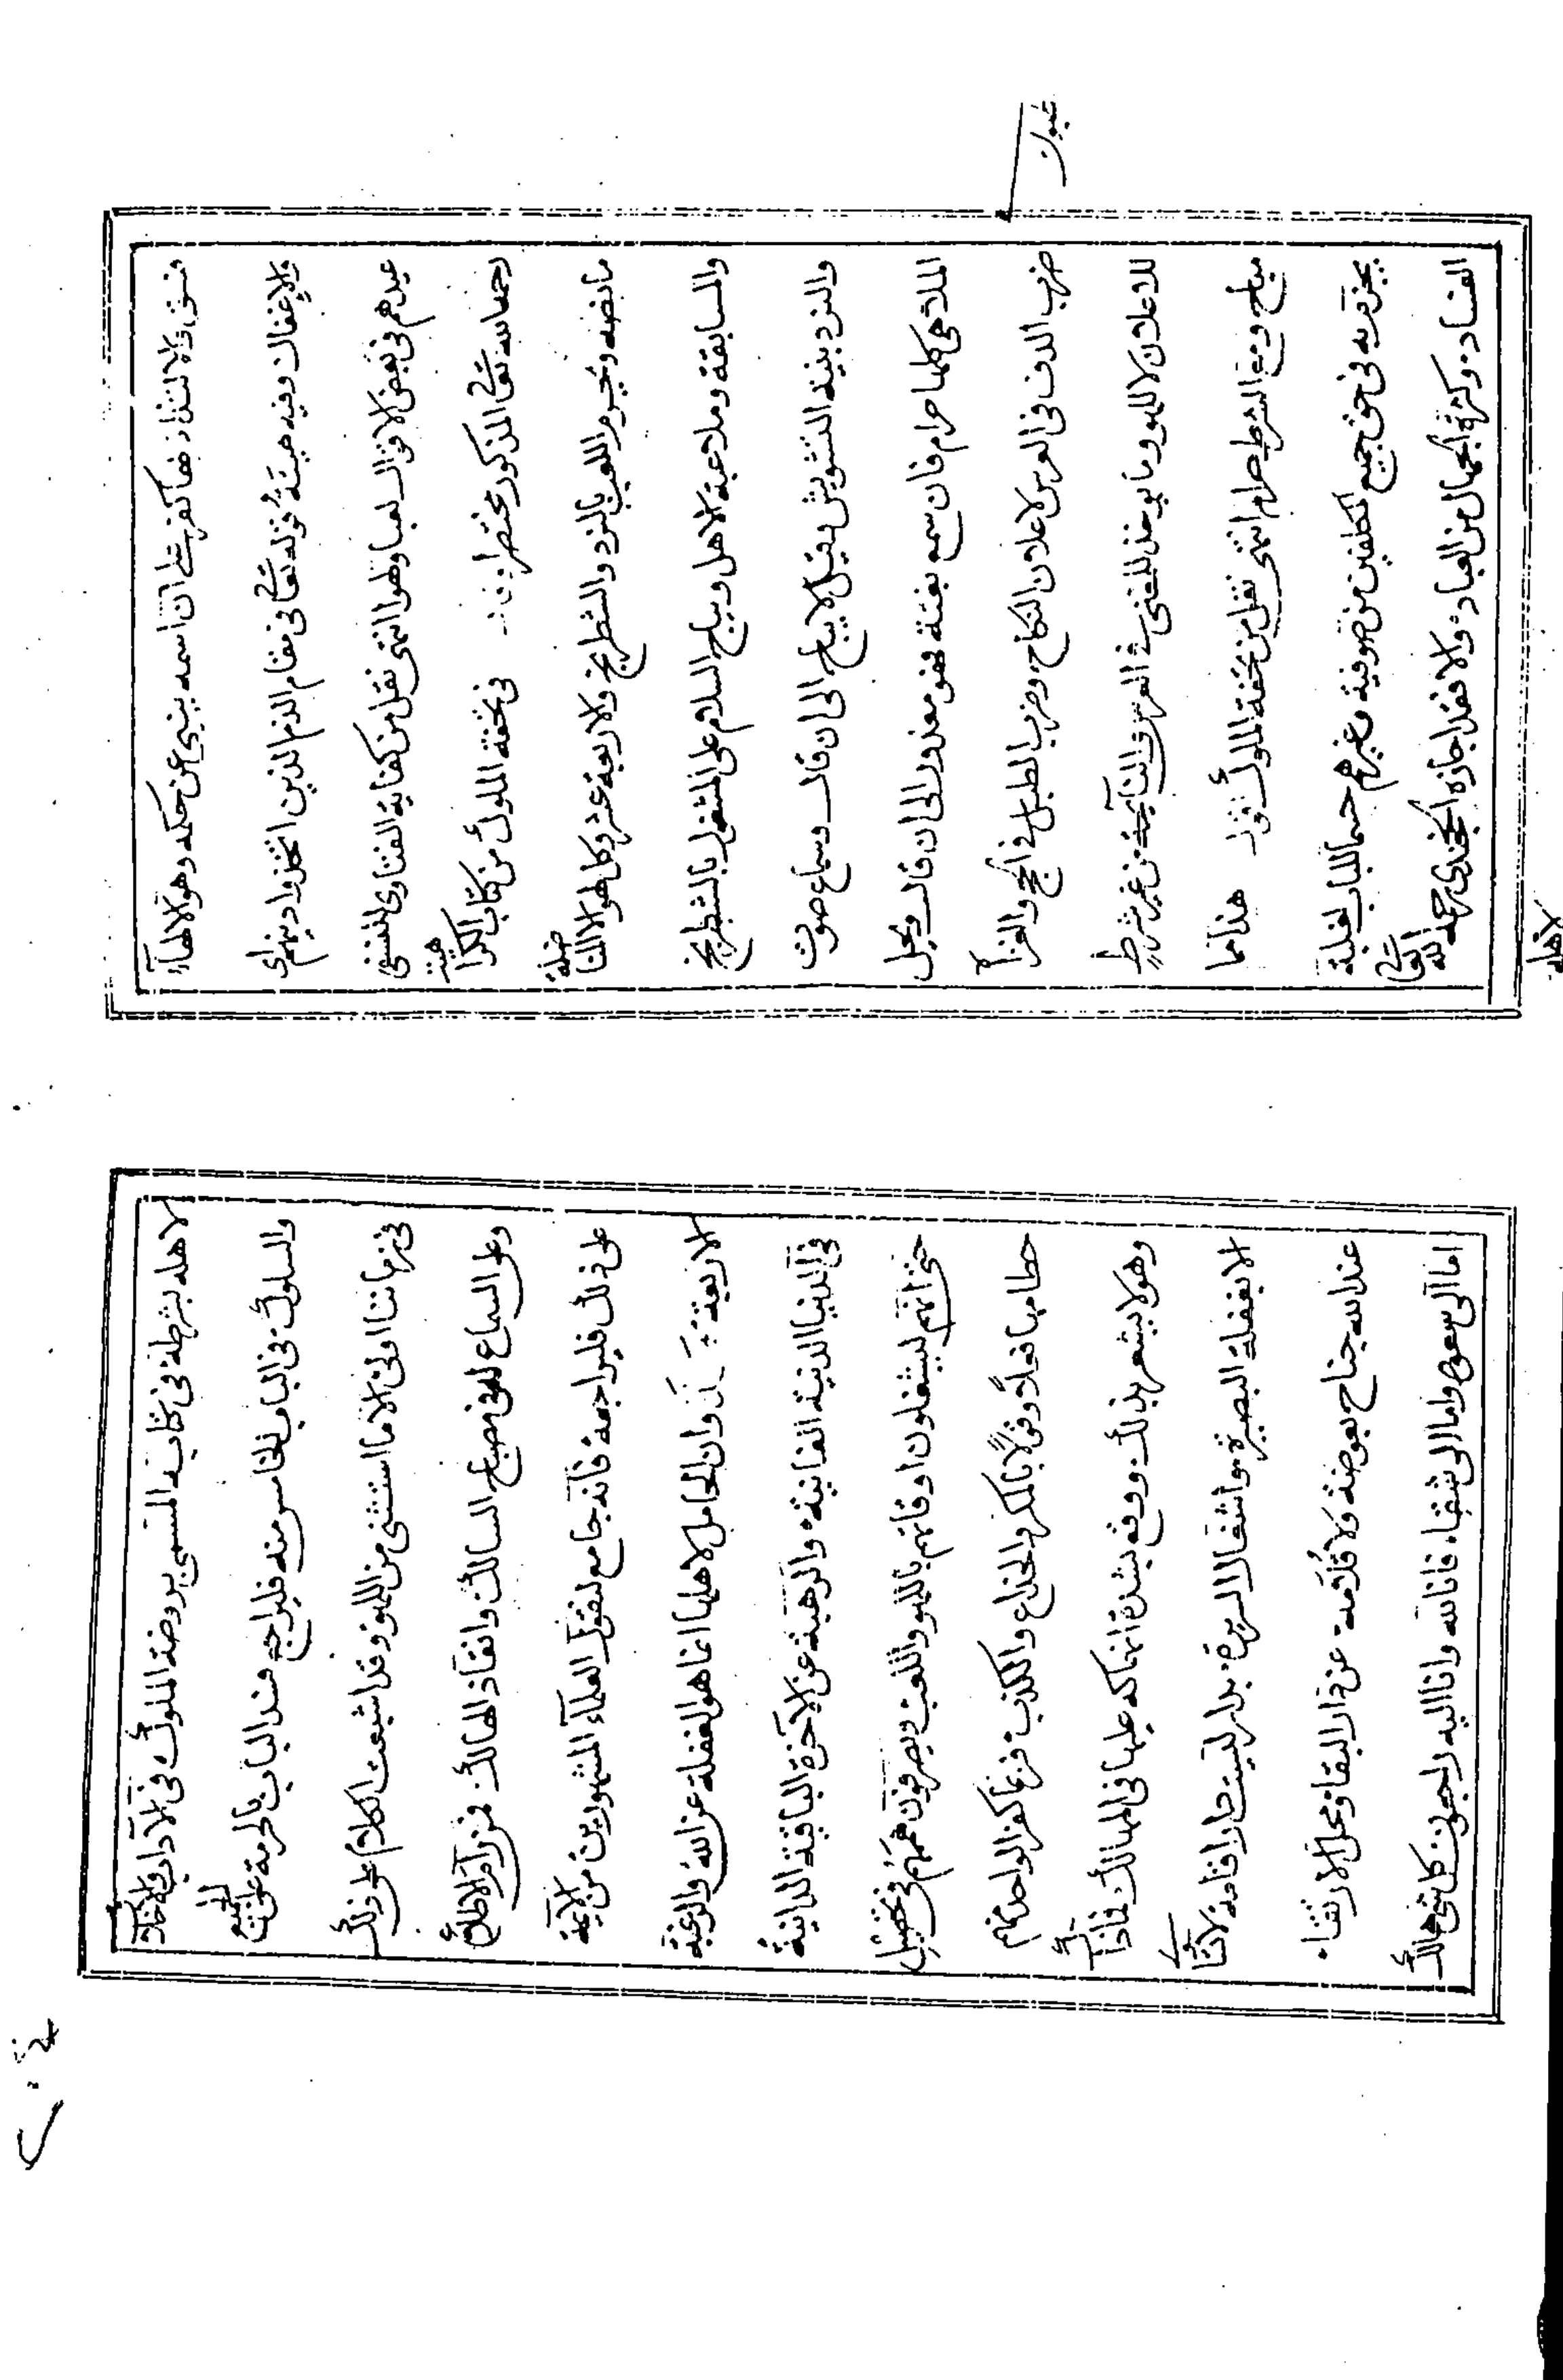 فسق والالتذاذ بها كفر على ان اسمه ينبى عن حكمه وهو الالهاء
والاغفال وفيه هيئة قوله تعالى فى مقام الذم الذين اتخذوا دينهم اى
عيدهم فى بعض الاقوال لعبا ولهوا انتهى نقل من كفاية الفتاوى للمفتى
رحمه الله تعالى المذكور مختصرا فى تحفة الملوك من كتاب الكرا
هية
ما نصه ويحرم اللعب بالنرد والشطرنج والاربعة عشر وكل لهو الا المنا
ضلة
والمسابقة وملاعبة الاهل ويباح السلام على المشغول بالشطرنج
والنرد بنية التشويش وقيل لا يباح الى ان قال وسماع صوت
الملاهى كلها حرام فان سمع بغتة فهو معذور الى ان قال ويحل
ضرب الدف فى العرس لاعلان النكاح وضرب الطبل فى الحج والغزاة
للاعلان لا للهو وما يوخذ للمغنى فى العرس والنائحة من غير شرط
مباح ومع الشرط حرام انتهى نقل من تحفة الملوك هذا مما
يجزم به فى حق جميع المكلفين من صوفية وغيرهم حسما للباب لغلبة
الفساد وكثرة الجهال من العباد والا فقد اجازه الخجندى رحمه الله
تعالى
لاهله
لاهله بشرطه فى كتابه المسمى بروضة الملوك فى الآداب والاخلاق
والسلوك فى الباب الخامس منه فليراجع فسد الباب بالحرمة على الجميع
فى زماننا اولى الا ما استثنى من اللهو وقد اشبعت الكلام على ذلك
وعلى السماع فى مصباح السالك وانقاذ الهالك فمن رام الاطلاع
على ذلك فليراجعه فانه جامع لنقول العلماء المشهورين من الايمة
الاربعة وان الحامل لاهلها انما هو الغفلة عن الله والرغبة
فى الدنيا الدنية الفانية والرهبة عن الآخرة الباقية الدانية
حتى انهم ليشغلون اوقاتهم باللهو واللعب ويصرفون هممهم فى تحصيل
حطامها قولا وفعلا بالمكر والخداع والكذب فربما كفر الواحد منهم
وهو لا يشعر بذلك ووقع بشدة انهماكه عليها فى المهالك فماذا
الا بغفلة البصيرة واشغال السريرة بدار ليست دار اقامة لا تسا
وى
عند الله جناح بعوضة ولا قلامة عن دار البقا ومحل الارتقاء
اما الى سعود واما الى شقاء فانا لله وانا اليه راجعون كل شى هالك